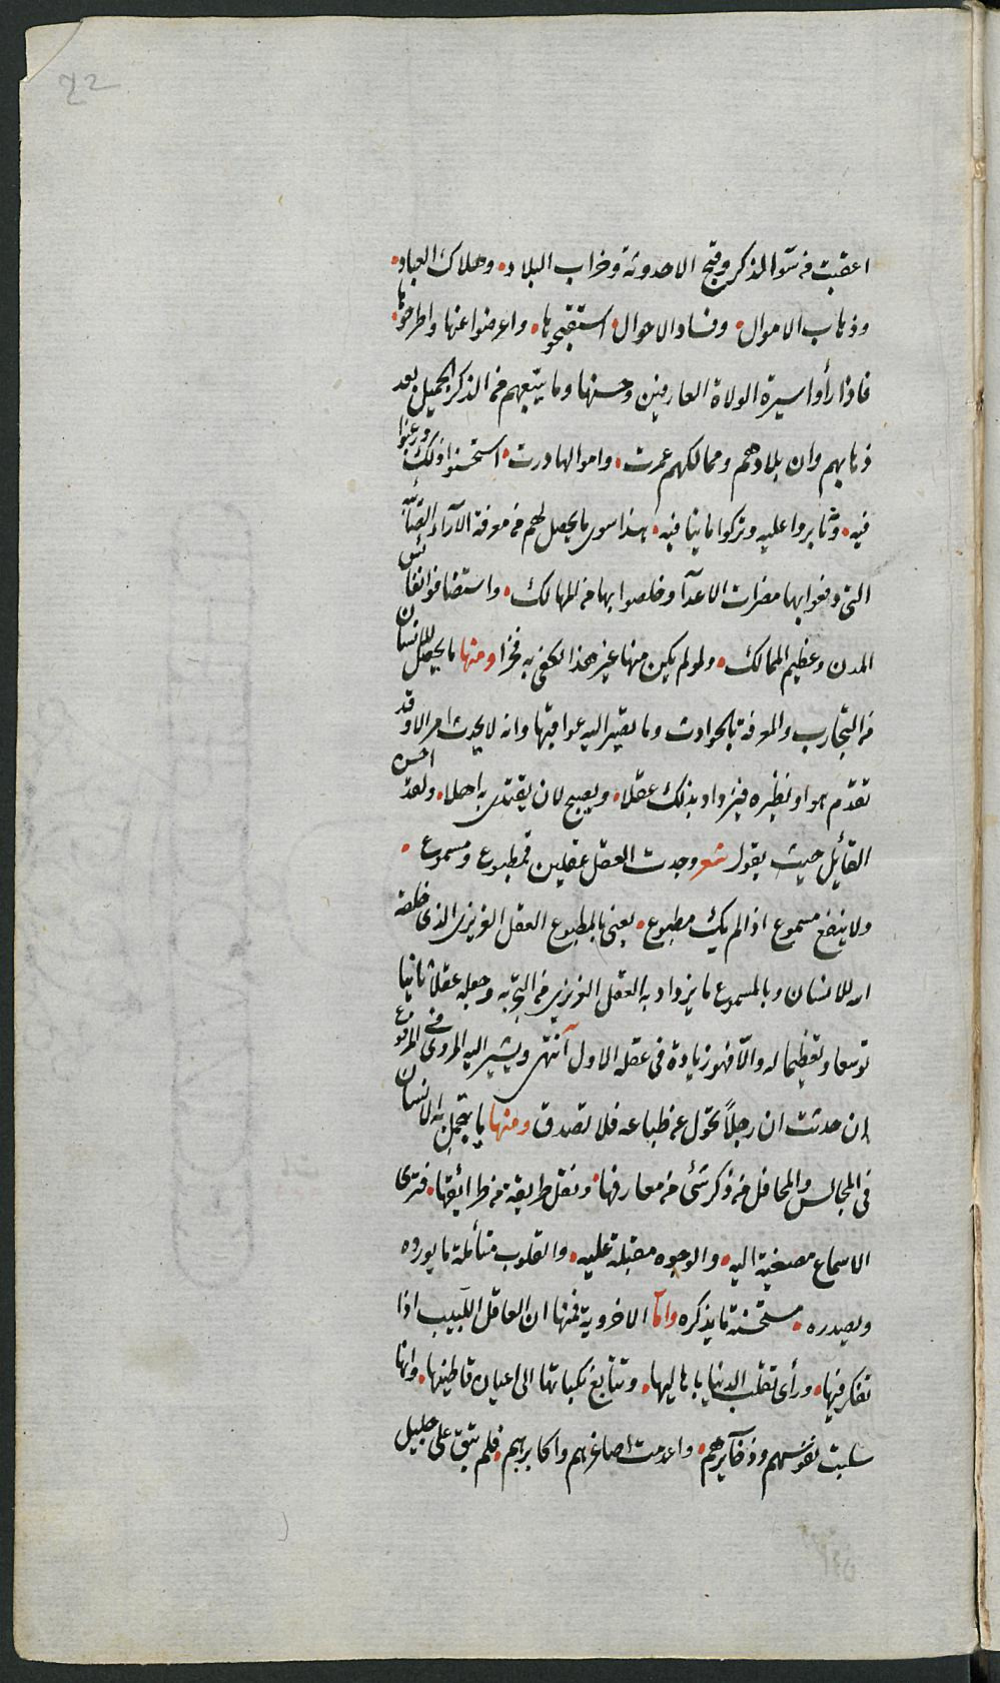 22
اعقبت من سوا الذكر وقبح الاحدوثة وخراب البلاد. وهلاك العباد.
وذهاب الاموال. وفساد الاحوال. استقبحوها. واعرضوا عنها واطرحوها.
فاذا رأوا سيرة الولاة العارفين وحسنها وما يتبعهم من الذكر الجميل بعد
ذهابهم وان بلادهم وممالكهم عمرت. واموالها درت. استحسنوا ذلك ورغبوا
فيه. وثابروا عليه وتركوا ما ينافيه. هذا سوى ما يحصل لهم من معرفة الآراء الصائبة
التى دفعوا بها مضرات الاعدآ وخلصوا بها من المهالك. واستضافوا نفائس
المدن وعظيم الممالك. ولو لم يكن منها غير هذا لكفى به فخرا ومنها ما يحصل للانسان
من التجارب والمعرفة بالحوادث وما تصير اليه عواقبها وانه لا يحدث امر الا وقد
تقدم هو او نظيره فيزداد بذلك عقلا. ويصبح لان يقتدى به اهلا. ولقد احسن
القائل حيث يقول شعر وجدت العقل عقلين فمطبوع ومسموع.
ولا ينفع مسموع اذا لم يك مطبوع. يعنى بالمطبوع العقل الغريزى الذى خلقه
الله للانسان وبالمسموع ما يزداد به العقل الغريزى من التجربه وجعله عقلا ثانيا
توسعا وتعظيما له والّا فهو زيادة فى عقله الاول انتهى ويشير اليه المروى فى المرفوع
إن حدثت ان رجلاً تحول عن طباعه فلا تصدق ومنها ما يتجمل به الانسان
فى المجالس والمحافل من ذكر شئ من معارفها. ونقل طريفة من طرائفها. فترى
الاسماع مصغية اليه. والوجوه مقبلة عليه. والقلوب متأملة ما يورده
ويصدره. مستحسنة ما يذكره وامّا الاخروية فمنها ان العاقل اللبيب اذا
تفكر فيها. ورأى تقلب الدنيا باهاليها. وتتابع نكباتها الى اعيان قاطنيها. وانها
سلبت نفوسهم وذخآيرهم. واعدمت اصاغرهم واكابرهم. فلم تبق على جليل